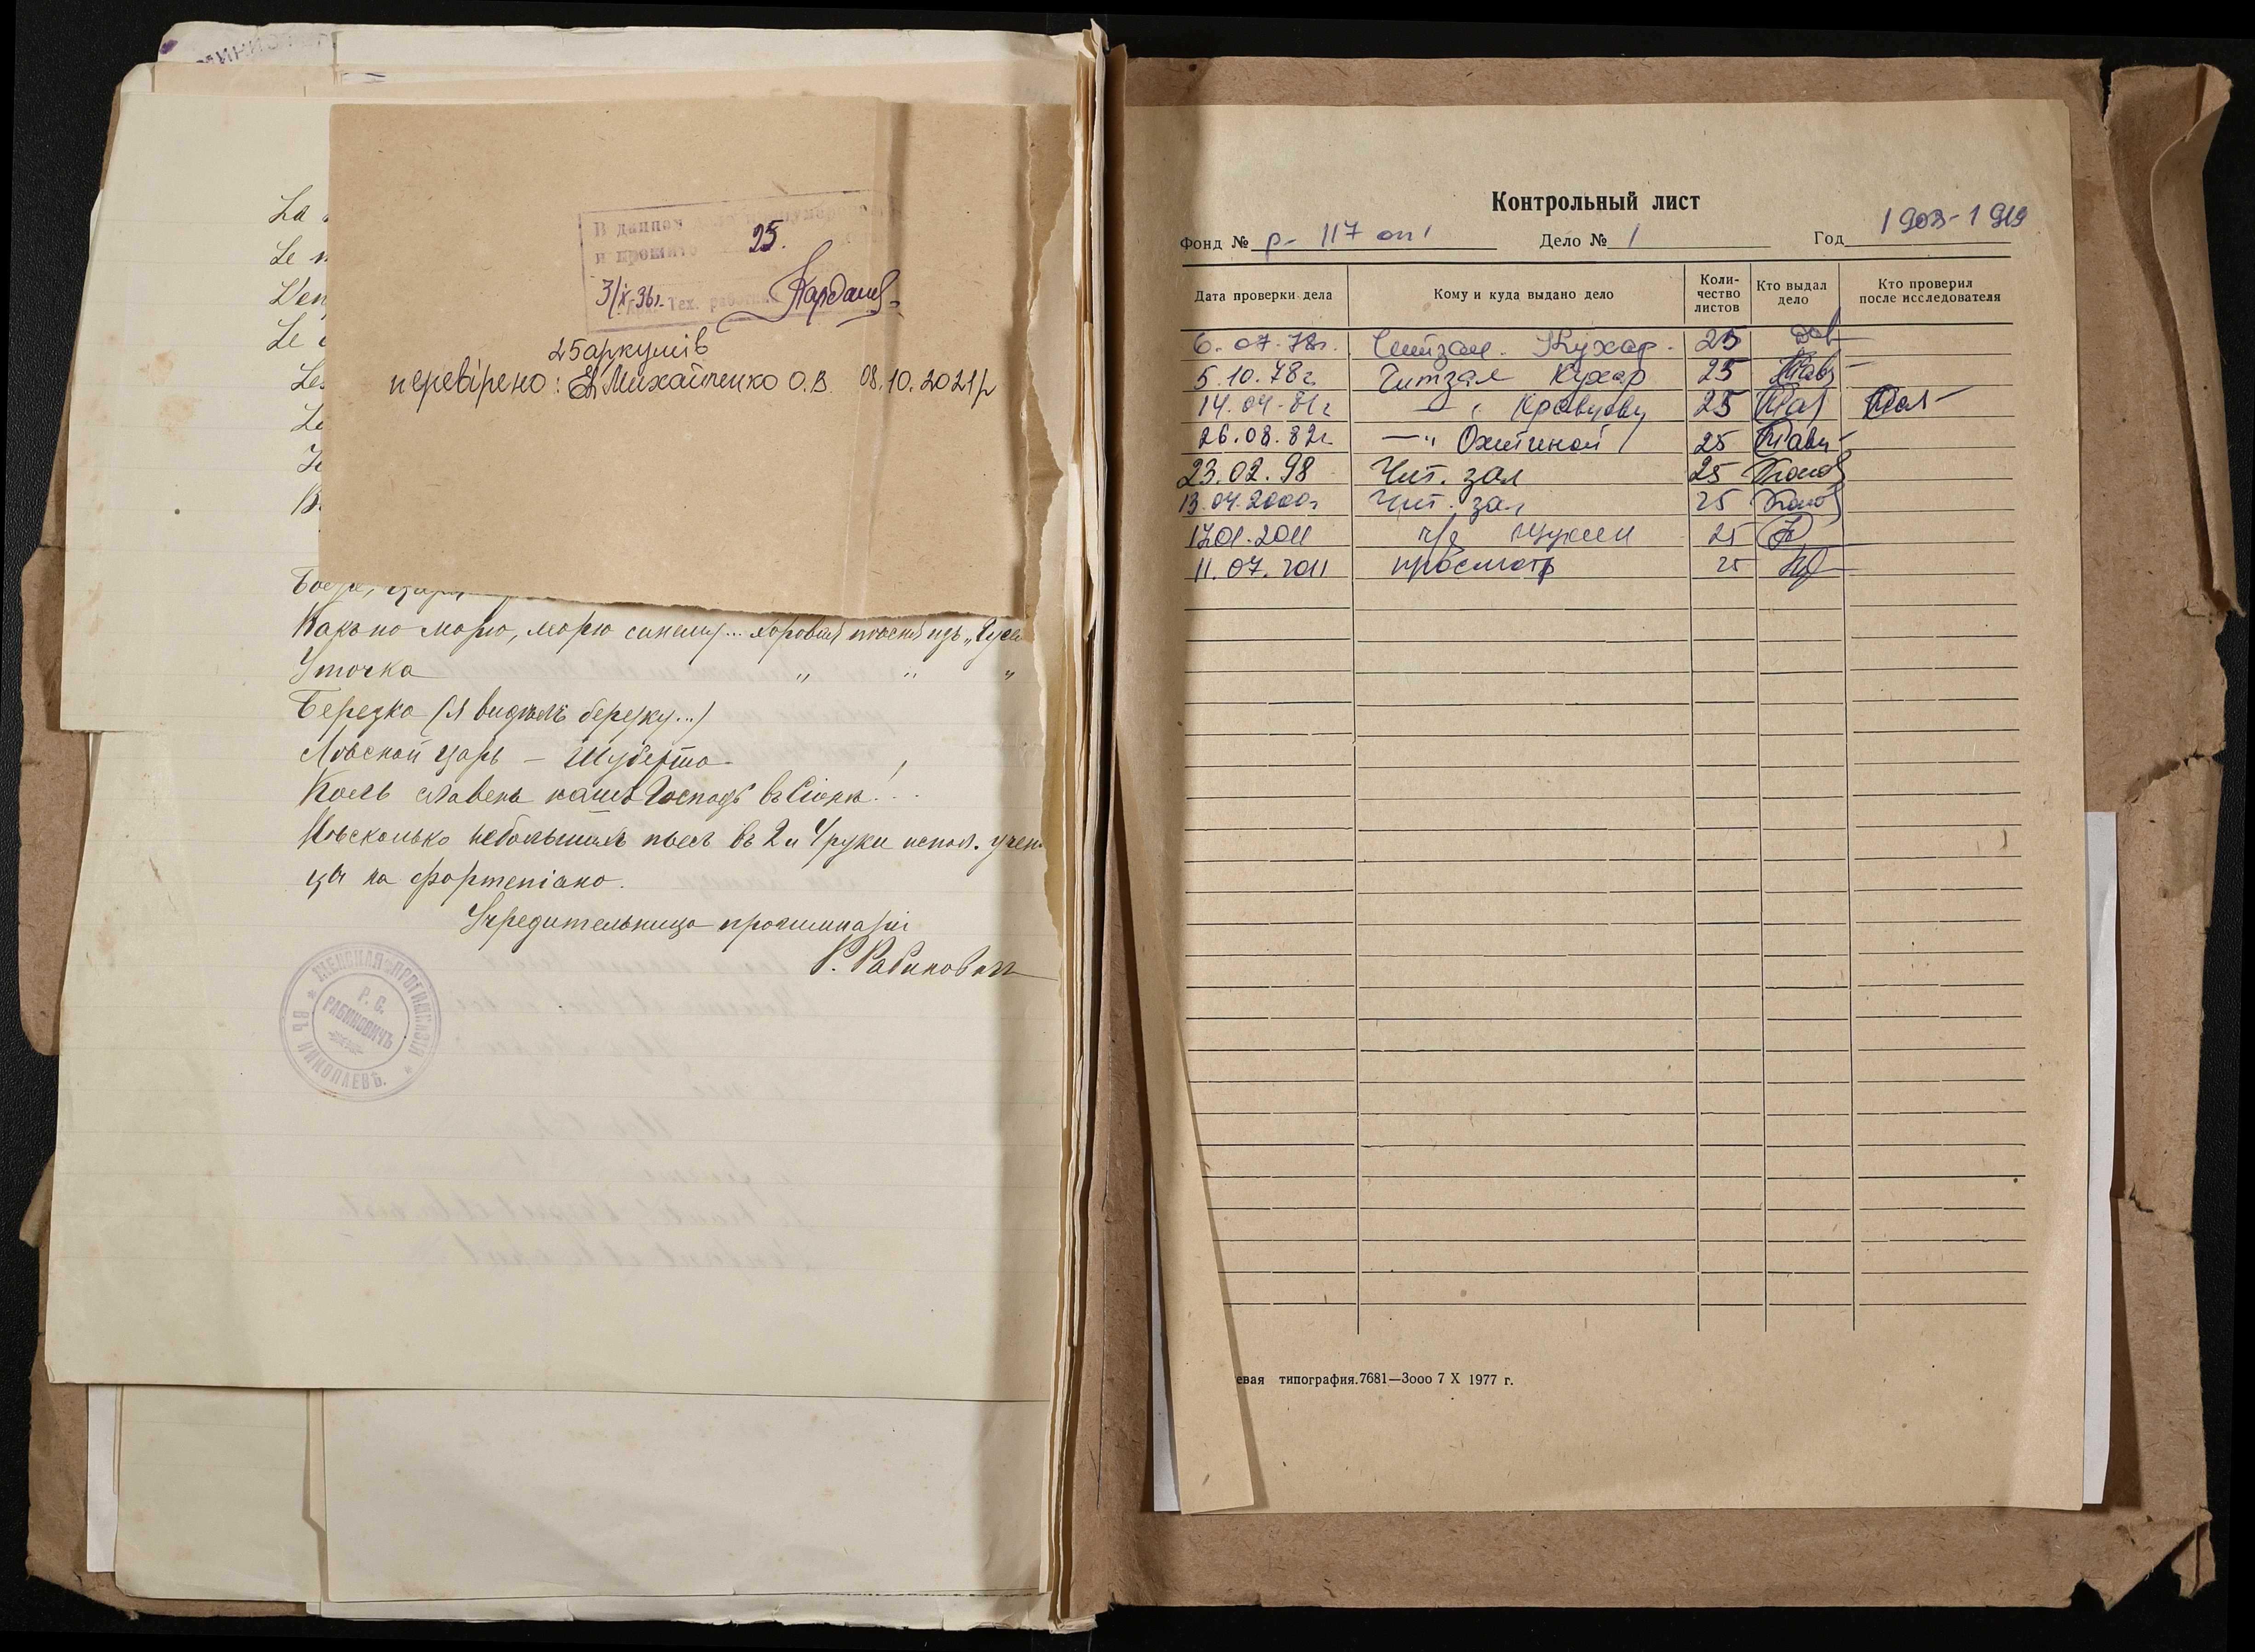 La
Le
Le
Les
В данном
и прошито 25.
3/X-36г. Тех. работник
25 аркушів
перевірено: Михайленко О.В. 08.10.2021р
Какъ по морю, морю синему... хоровая пѣсня изъ „Гусел
Уточка „ „ „
Березка (Я видѣлъ березку...)
Лѣсной царь – Шуберта
Коль славенъ нашъ Господь въ Сіонѣ!..
Нѣсколько небольшихъ пьесъ въ 2 и 4 руки испол. учени
цы на фортепіано.
Учредительница прогимназіи
Р. Рабиновичъ
ЖЕНСКАЯ ПРОГИМНАЗІЯ
Р. С.
РАБИНОВИЧЪ
НИКОЛАЕВЪ.
Контрольный лист
Фонд № р- 117 оп 1 Дело № 1 Год 1903-1919
Дата проверки дела Кому и куда выдано дело Коли-чество листов Кто выдал дело Кто проверил после исследователя
6.07.78г. Читзал. Кухар. 25
5.10.78г. Читзал Кухар 25
14.04.81г —„ 25
26.08.82г. —„ 25
23.02.98 Чит. зал 25
13.04.2000г Чит. зал 25
17.01.2011 ч/з 25
11.07.2011 просмотр 25
евая типография.7681—3000 7 X 1977 г.